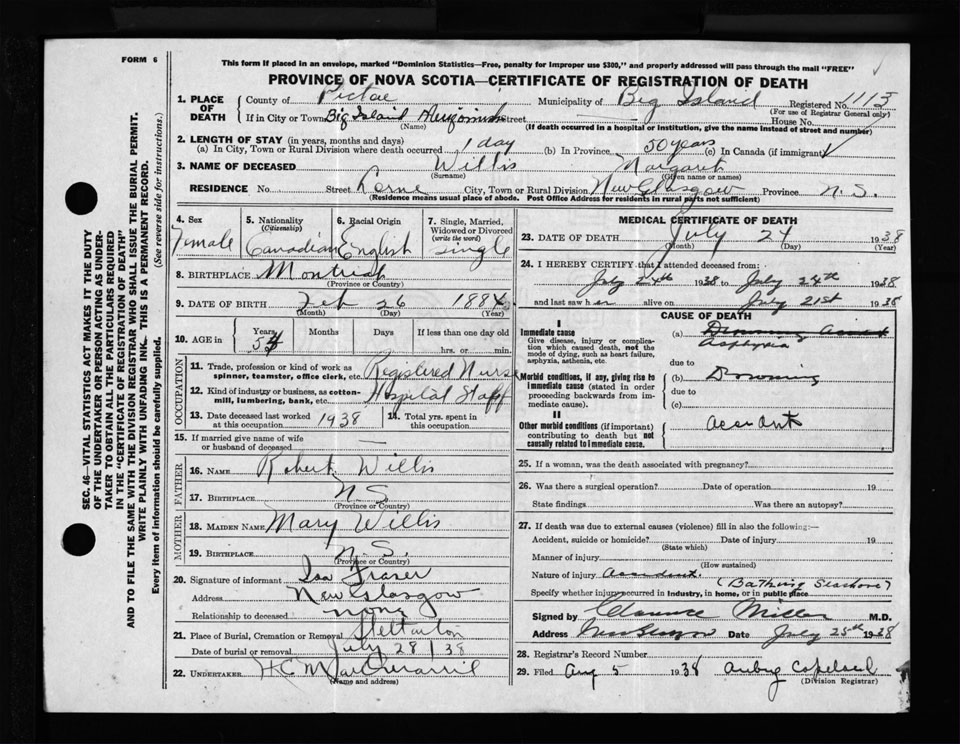 FORM 6
This form if placed in an envelope, marked "Dominion Statistics—Free, penalty for improper use $300," and properly addressed will pass through the mail "FREE"
PROVINCE OF NOVA SCOTIA—CERTIFICATE OF REGISTRATION OF DEATH
SEC. 46—VITAL STATISTICS ACT MAKES IT THE DUTY
OF THE UNDERTAKER OR PERSON ACTING AS UNDER-
TAKER TO OBTAIN ALL THE PARTICULARS REQUIRED
IN THE "CERTIFICATE OF REGISTRATION OF DEATH"
AND TO FILE THE SAME WITH THE DIVISION REGISTRAR WHO SHALL ISSUE THE BURIAL PERMIT.
WRITE PLAINLY WITH UNFADING INK. THIS IS A PERMANENT RECORD.
Every item of information should be carefully supplied. (See reverse side for instructions.)
1. PLACE OF DEATH County of Pictou Municipality of Big Island Registered No. 1113
(For use of Registrar General only)
If in City or Town Big Island Street House No.
(Name) (If death occurred in a hospital or institution, give the name instead of street and number)
2. LENGTH OF STAY (in years, months and days)
(a) In City, Town or Rural Division where death occurred 1 day (b) In Province 50 years (c) In Canada (if immigrant)
3. NAME OF DECEASED Willis Margaret
(Surname) (Given name or names)
RESIDENCE No. Street Lorne City, Town or Rural Division New Glasgow Province N.S.
(Residence means usual place of abode. Post Office Address for residents in rural parts not sufficient)
4. Sex Female
5. Nationality (Citizenship) Canadian
6. Racial Origin English
7. Single, Married, Widowed or Divorced (write the word) Single
8. BIRTHPLACE
(Province or Country)
9. DATE OF BIRTH Feb 26 1884
(Month) (Day) (Year)
10. AGE in Years 54 Months Days If less than one day old
hrs. or min.
OCCUPATION
11. Trade, profession or kind of work as spinner, teamster, office clerk, etc. Registered Nurse
12. Kind of industry or business, as cotton-mill, lumbering, bank, etc. Hospital Staff
13. Date deceased last worked at this occupation 1938
14. Total yrs. spent in this occupation
15. If married give name of wife or husband of deceased —
FATHER
16. NAME Robert Willis
17. BIRTHPLACE N.S.
(Province or Country)
MOTHER
18. MAIDEN NAME Mary Willis
19. BIRTHPLACE N.S.
(Province or Country)
20. Signature of informant Fraser
Address New Glasgow
Relationship to deceased none
21. Place of Burial, Cremation or Removal Stellarton
Date of burial or removal July 28/38
22. UNDERTAKER H.C.
(Name and address)
MEDICAL CERTIFICATE OF DEATH
23. DATE OF DEATH July 24 1938
(Month) (Day) (Year)
24. I HEREBY CERTIFY that I attended deceased from:
July 24th 1938 to July 24th 1938
and last saw her alive on July 21st 1938
CAUSE OF DEATH
I
Immediate cause
Give disease, injury or complication which caused death, not the mode of dying, such as heart failure, asphyxia, asthenia, etc.
(a) Drowning
Asphyxia
due to
Morbid conditions, if any, giving rise to immediate cause (stated in order proceeding backwards from immediate cause).
(b) Drowning
due to
(c)
II
Other morbid conditions (if important) contributing to death but not causally related to immediate cause.
Accident
25. If a woman, was the death associated with pregnancy?
26. Was there a surgical operation? Date of operation 19
State findings Was there an autopsy?
27. If death was due to external causes (violence) fill in also the following:—
Accident, suicide or homicide? Date of injury 19
(State which)
Manner of injury
(How sustained)
Nature of injury Accident. (Bathing Seashore)
Specify whether injury occurred in industry, in home, or in public place
Signed by Clarence Miller M.D.
Address New Glasgow Date July 25th 1938
28. Registrar's Record Number
29. Filed Aug 5 1938 Copeland
(Division Registrar)